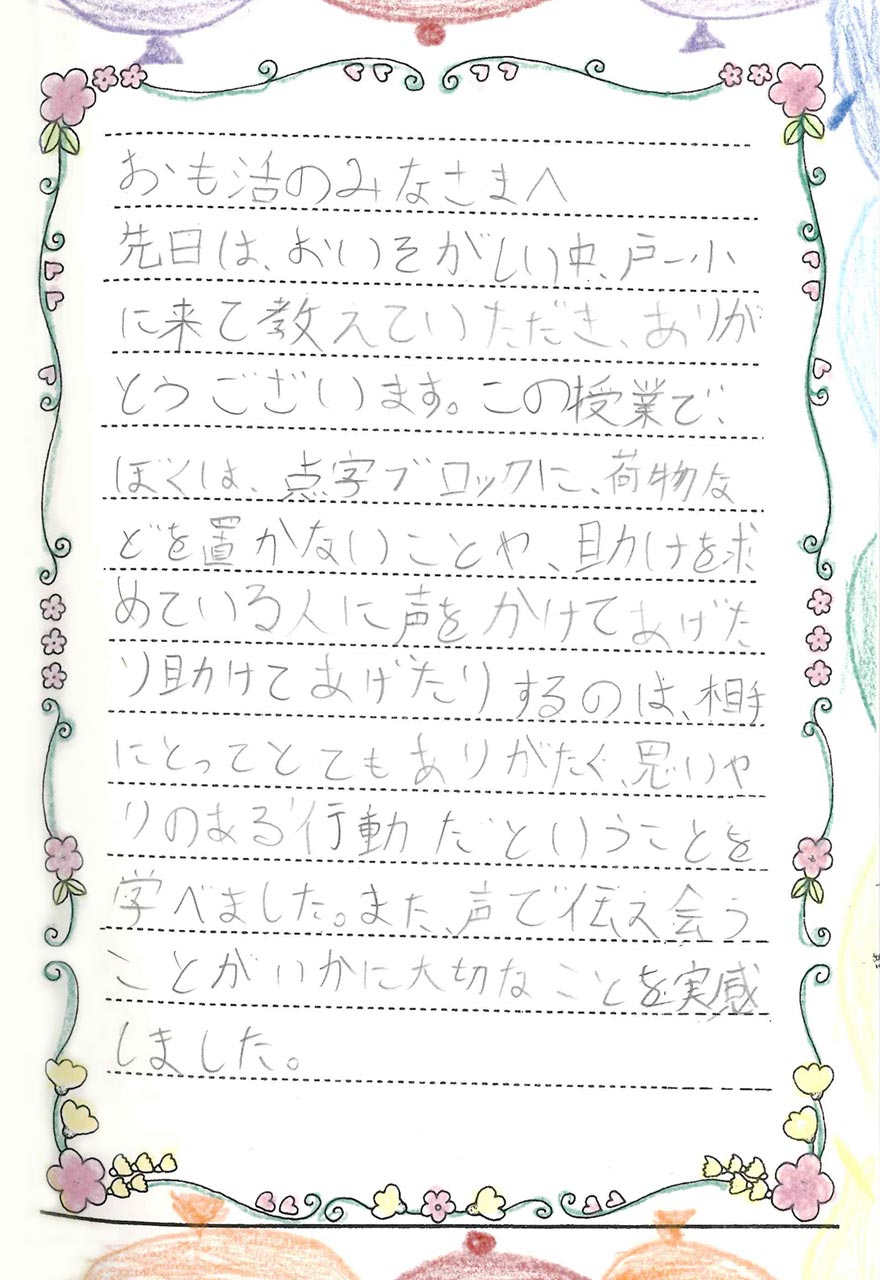 おも活のみなさまへ
先日は、おいそがしい中、戸一小
に来て教えていただき、ありが
とうございます。この授業で、
ぼくは、点字ブロックに、荷物な
どを置かないことや、助けを求
めている人に声をかけてあげた
り助けてあげたりするのは、相手
にとってとてもありがたく、思いや
りのある行動だということを
学べました。また、声で伝え会う
ことがいかに大切なことを実感
しました。